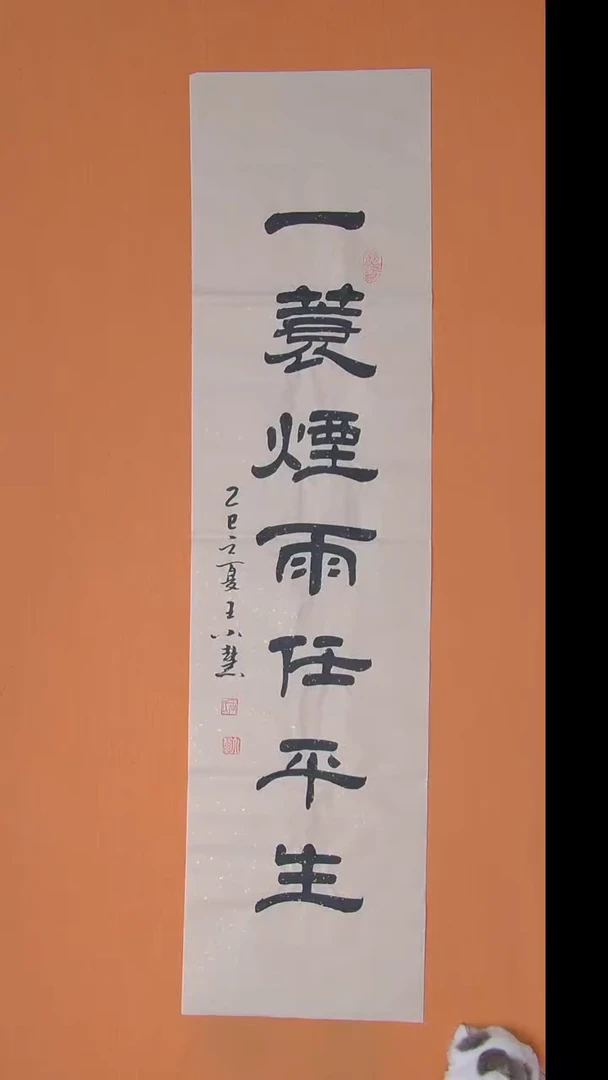 一蓑煙雨任平生
乙巳之夏王小慧